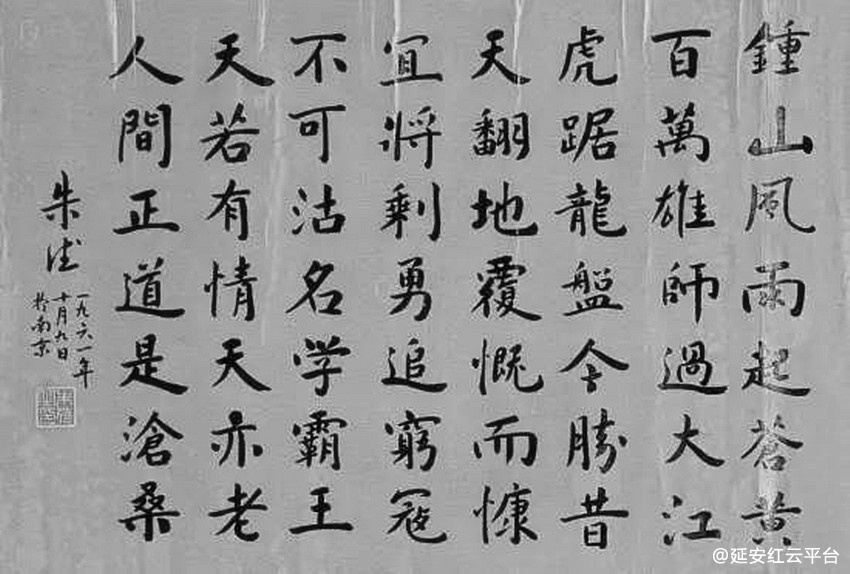 鍾山風雨起蒼黄
百萬雄師過大江
虎踞龍盤今勝昔
天翻地覆慨而慷
宜將剩勇追窮寇
不可沽名学霸王
天若有情天亦老
人間正道是滄桑
朱德
一九六一年
十月九日
於南京
@延安红云平台